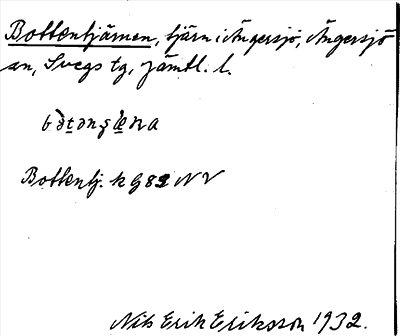 Bottentjärnen, tjärn i Ängersjö, Ängersjö
sn, Svegs tg, Jämtl. l.
Bottentj. k G 82 NV
Nils Erik Eriksson 1932.